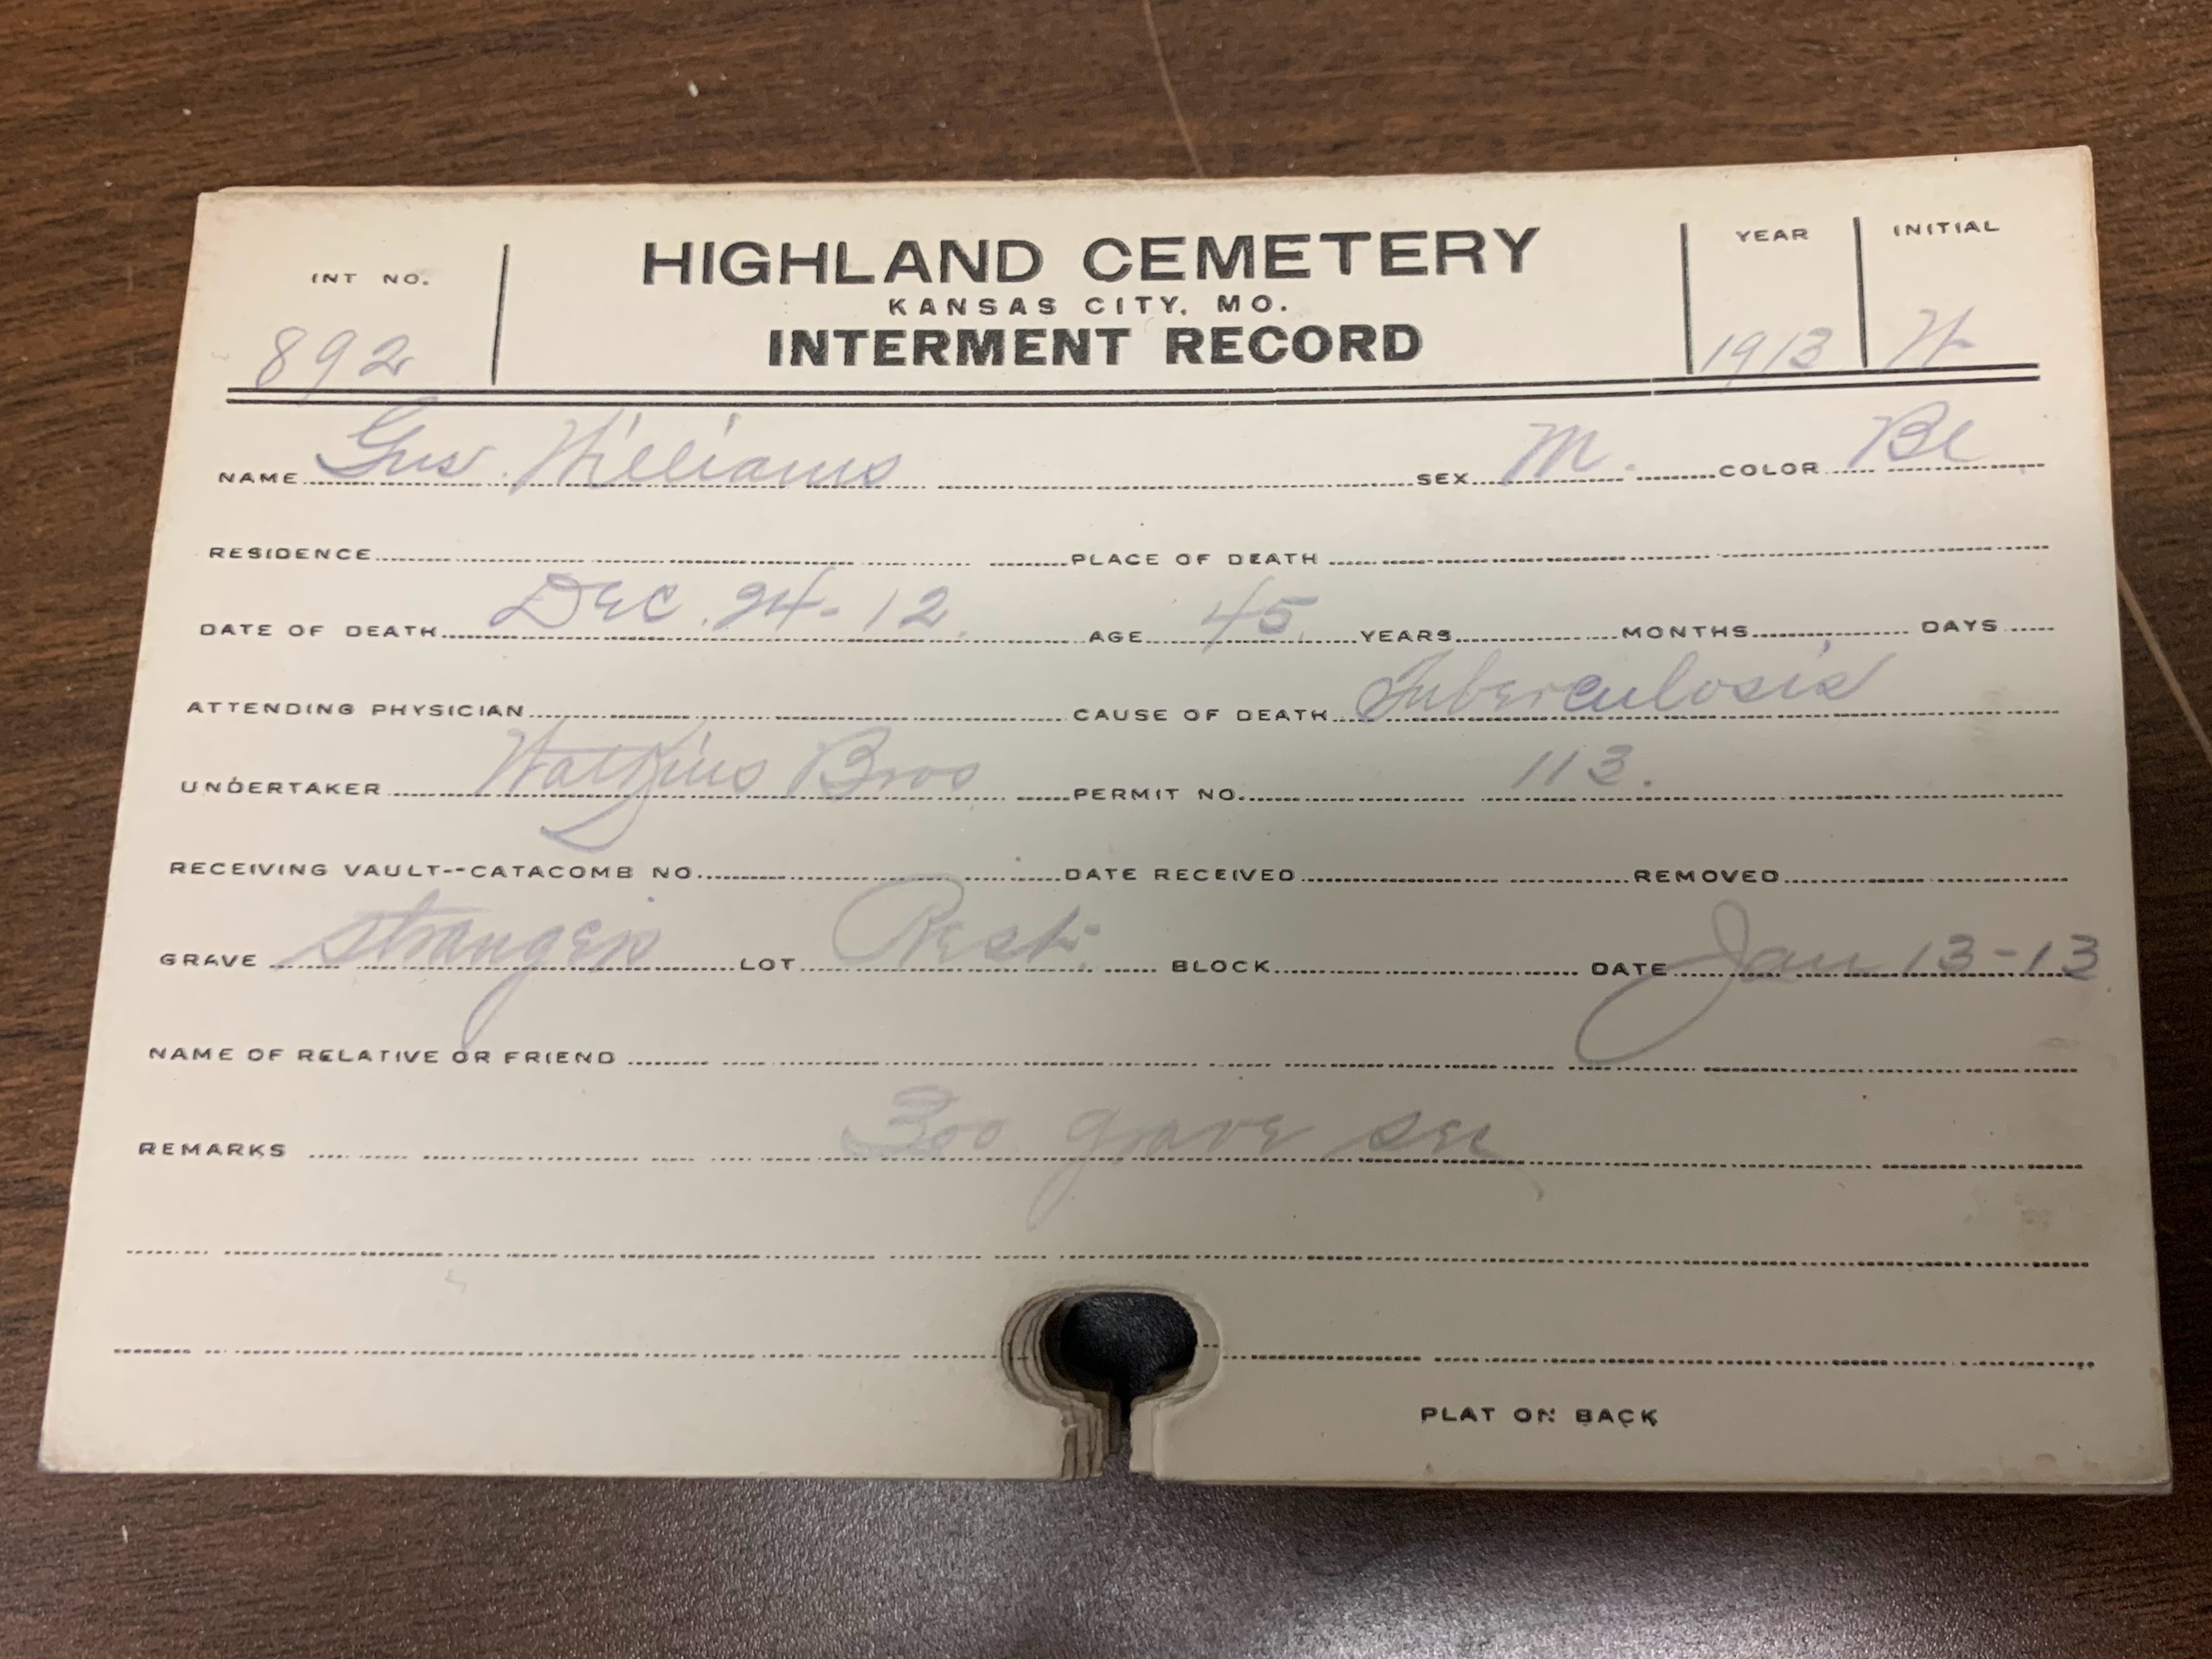 INT NO. HIGHLAND CEMETERY YEAR INITIAL
KANSAS CITY, MO.
892 INTERMENT RECORD 1913 W
NAME Gus Williams SEX M. COLOR Bl
RESIDENCE PLACE OF DEATH
DATE OF DEATH Dec. 24-12. AGE 45 YEARS MONTHS DAYS
ATTENDING PHYSICIAN CAUSE OF DEATH Tuberculosis
UNDERTAKER Watkins Bros PERMIT NO. 113.
RECEIVING VAULT--CATACOMB NO. DATE RECEIVED REMOVED
GRAVE Strangers LOT Rest. BLOCK DATE Jan 13-13
NAME OF RELATIVE OR FRIEND
REMARKS 300 grave sec
PLAT ON BACK